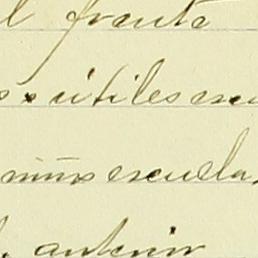 l frente
s x útiles escu
niñas escuela,
l. anterior